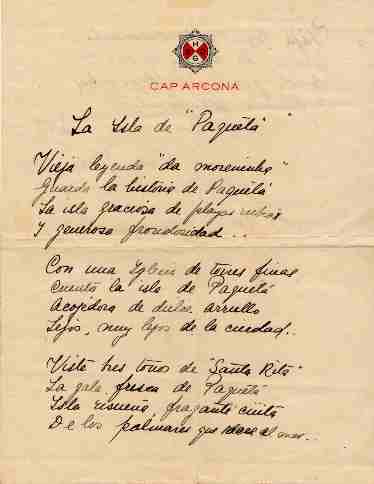 H G
CAP ARCONA
La Isla de "Paquetá"
Vieja leyenda "da moreninha"
Guarda la historia de Paquetá
La isla graciosa de playas rubias
Y generosa frondosidad..
Con una Iglesia de torres finas
Cuenta la isla de Paquetá
Acojedora de dulce arrullo
Lejos, muy lejos de la ciudad..
Viste tres tonos de "Santa Rita"
La gala fresca de Paquetá
Isla risueña, fragante
De los palmares que al mar..